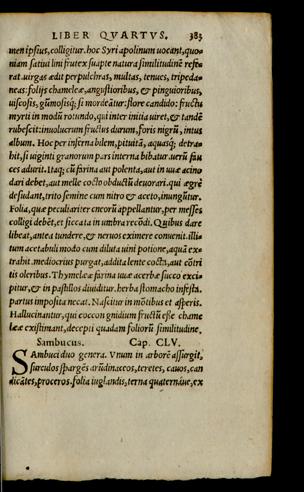 LIBER QVARTVS. 383
men ipsius, colligitur. hoc Syri apolinum uocant, quo-
niam satiui lini frutex suapte natura similitudinē refe-
rat. uirgas ædit perpulchras, multas, tenues, tripeda-
neas: folijs chameleæ, angustioribus, & pinguioribus,
uiscosis, gūmosisq́; si mordeātur: flore candido: fructu
myrti in modū rotundo, qui inter initia uiret, & tandē
rubescit: inuolucrum fructus durum, foris nigrū, intus
album. Hoc per inferna bilem, pituitā, aquasq́; detra-
hit, si uiginti granorum pars interna bibatur. uerū fau
ces adurit. Itaq; cū farina aut polenta, aut in uuæ acino
dari debet, aut melle cocto obductū deuorari. qui ægrè
desudant, trito semine cum nitro & aceto, inungūtur.
Folia, quæ peculiariter cneorū appellantur, per messes
colligi debēt, et siccata in umbra recōdi. Quibus dare
libeat, antea tundere, & neruos eximere conuenit. illi-
tum acetabuli modo cum diluta uini potione, aquā ex-
trahit. mediocrius purgat, addita lente cocta, aut cōtri
tis oleribus. Thymeleæ farina uuæ acerbæ succo exci-
pitur, & in pastillos diuiditur. herba stomacho infesta.
partus imposita necat. Nascitur in mōtibus et asperis.
Hallucinantur, qui coccon gnidium fructū esse chame
leæ existimant, decepti quadam foliorū similitudine.
Sambucus. Cap. CLV.
SAmbuci duo genera. Vnum in arborē assurgit,
surculos spargēs arūdinaceos, teretes, cauos, can
dicātes, proceros. folia iuglandis, terna quaternáue, ex